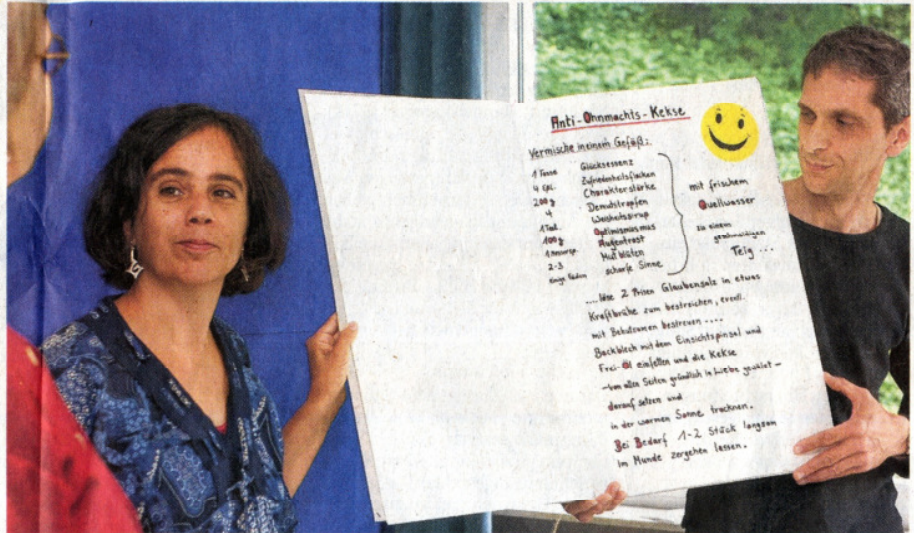 Anti-Ohnmachts-Kekse
Vermische in einem Gefäß:
1 Tasse Glücksessenz
4 Eßl. Zufriedenheitsflocken
200 g Charakterstärke
4 Demutstropfen
1 Teel. Weisheitssirup
100 g Optimismusmus
1 Messersp. Augentrost
2-3 Mutblüten
einige Fäden scharfe Sinne
mit frischem
Quellwasser
zu einem
geschmeidigen
Teig ...
.... löse 2 Prisen Glaubensalz in etwas
Kraftbrühe zum bestreichen, eventl.
mit bestreuen ....
Backblech mit dem Einsichtspinsel und
Frei-Öl einfetten und die Kekse
-von allen Seiten gründlich in Liebe gewälzt-
darauf setzen und
in der warmen Sonne trocknen.
Bei Bedarf 1-2 Stück langsam
im Munde zergehen lassen.